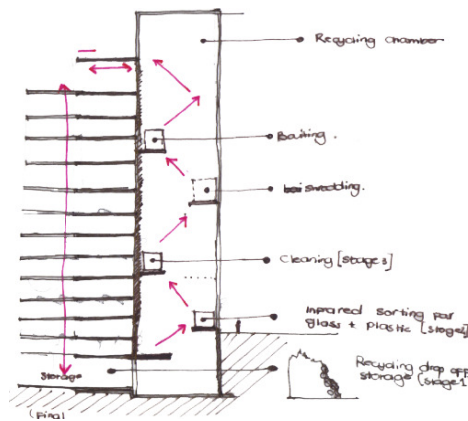 Recycling chamber
Bailing.
shredding.
Cleaning [stage 3]
Infrared sorting for
glass + plastic [stage2]
Recycling drop off
storage (stage 1
Storage
(final